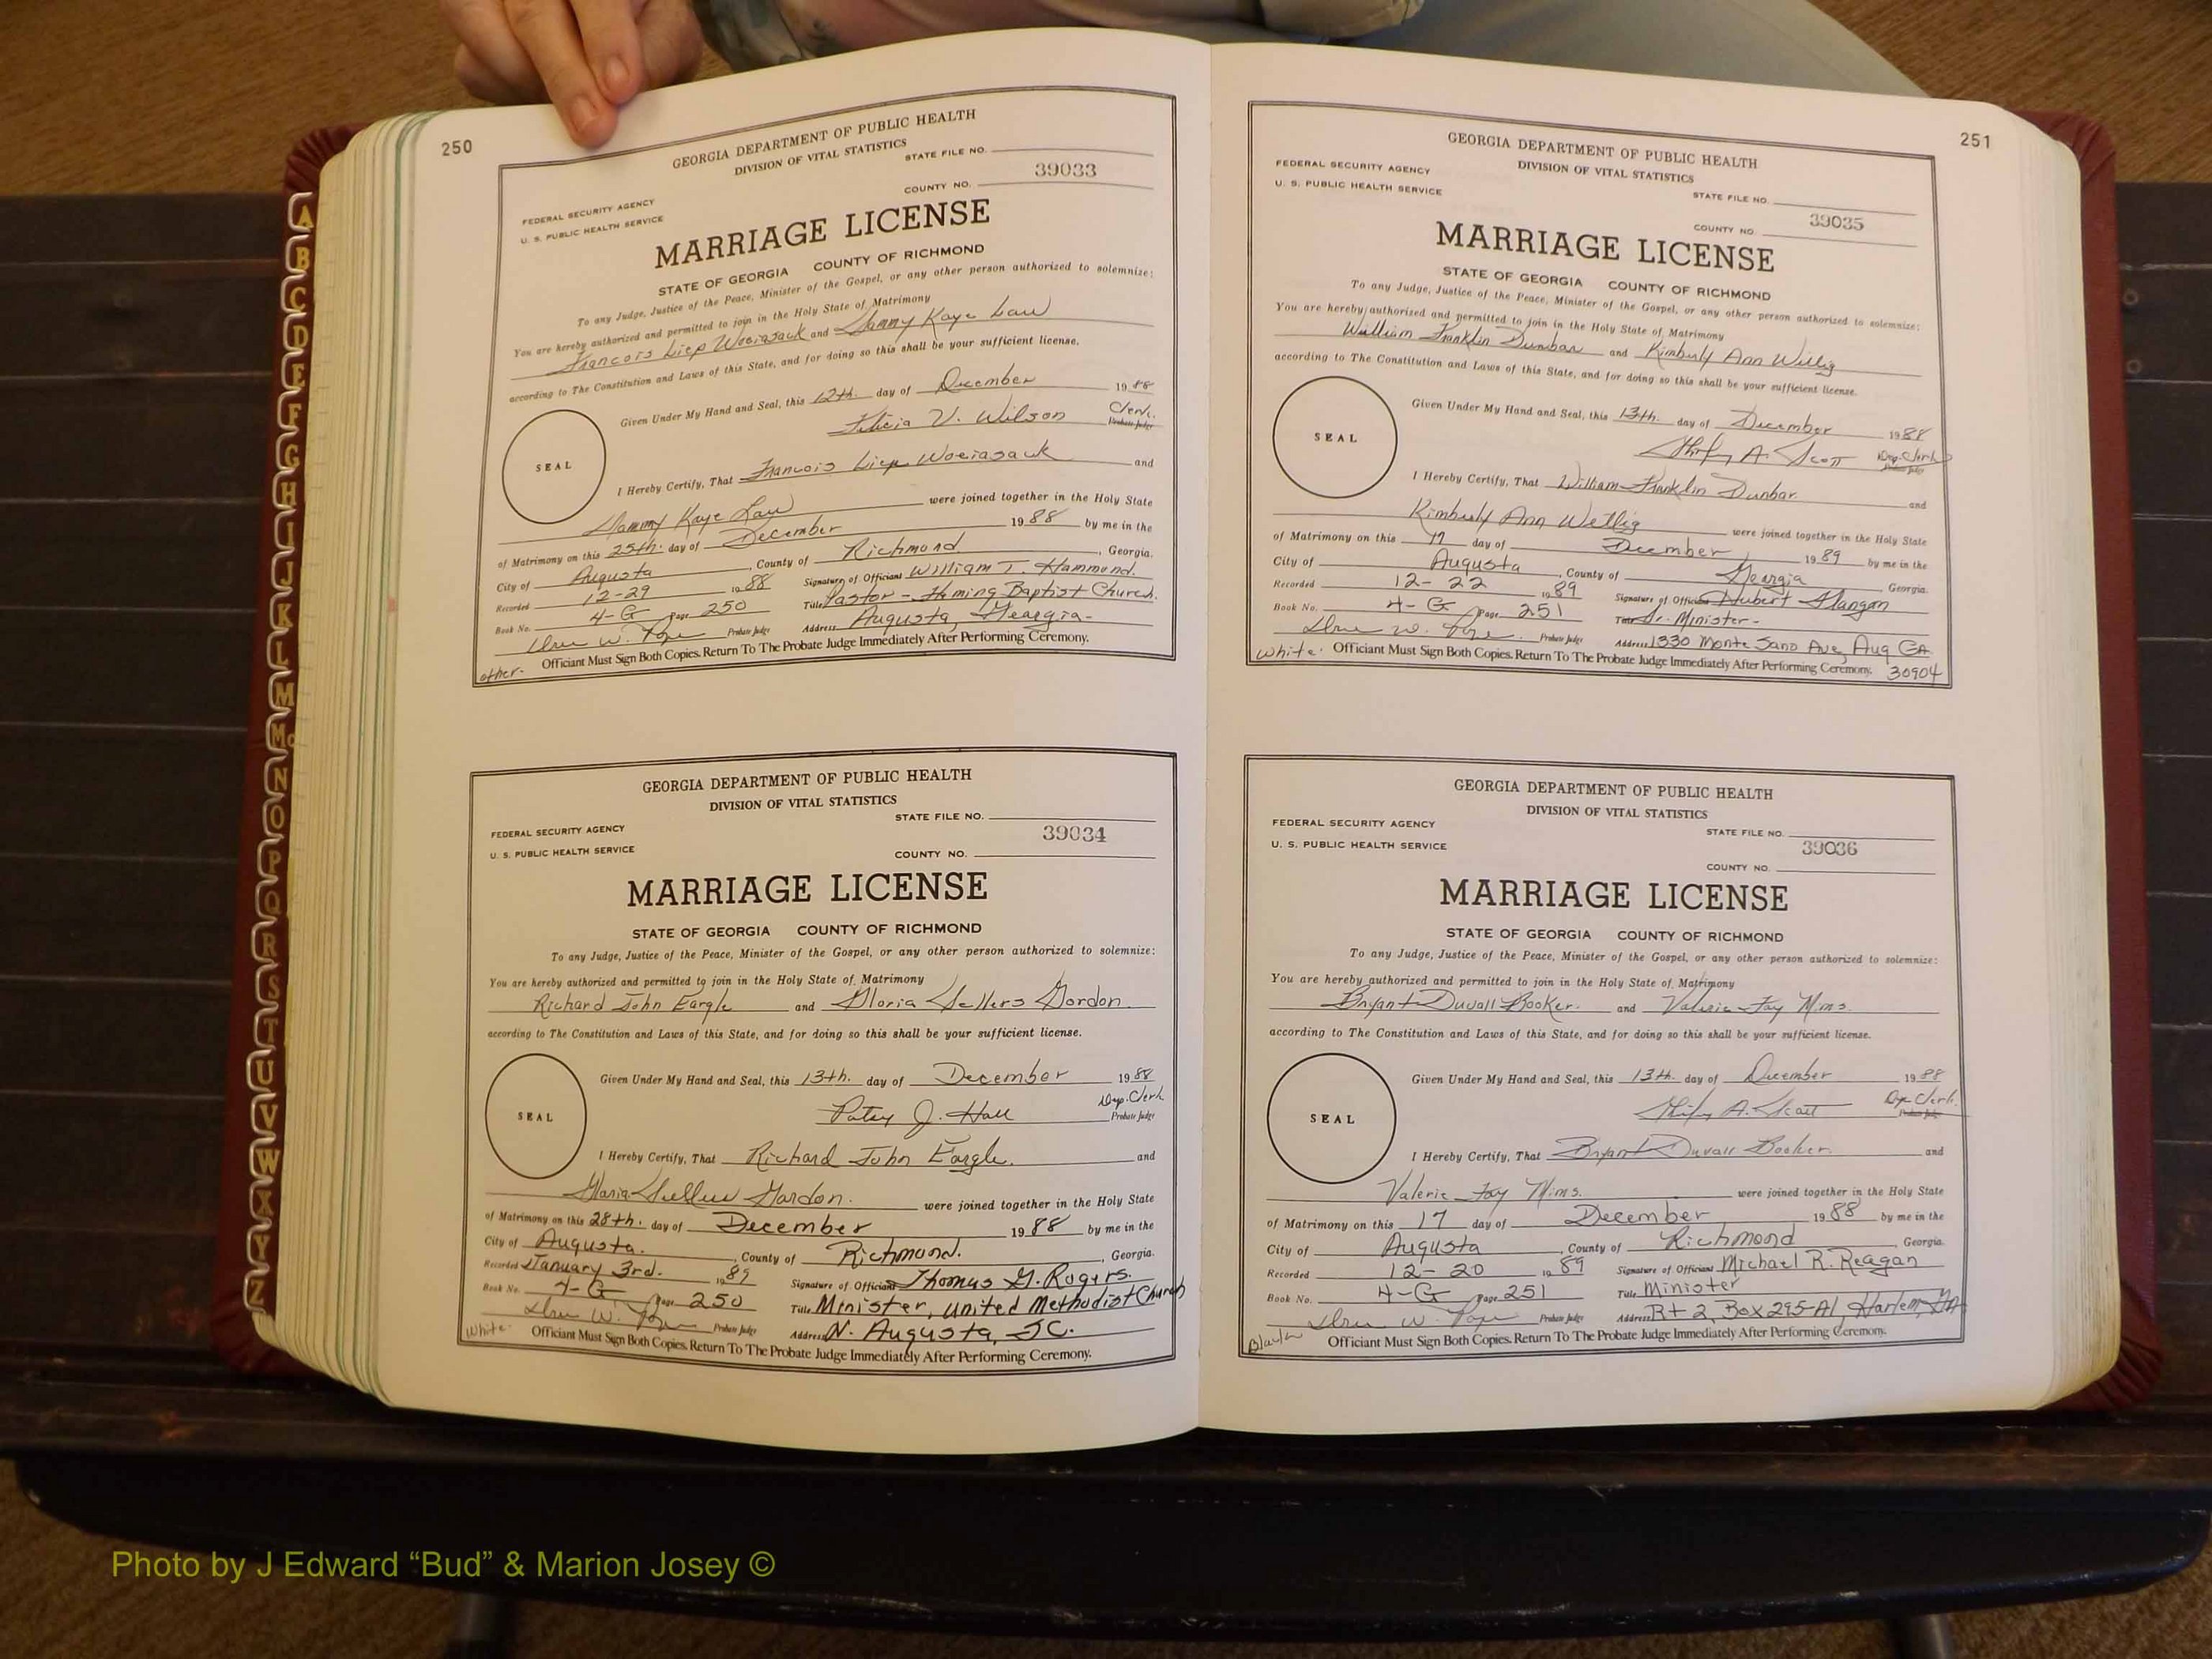 250
GEORGIA DEPARTMENT OF PUBLIC HEALTH
DIVISION OF VITAL STATISTICS
STATE FILE NO.
39033
COUNTY NO.
FEDERAL SECURITY AGENCY
U. S. PUBLIC HEALTH SERVICE
MARRIAGE LICENSE
STATE OF GEORGIA COUNTY OF RICHMOND
To any Judge, Justice of the Peace, Minister of the Gospel, or any other person authorized to solemnize:
You are hereby authorized and permitted to join in the Holy State of Matrimony
Francois Liep and Kaye Law
according to The Constitution and Laws of this State, and for doing so this shall be your sufficient license.
Given Under My Hand and Seal, this 12th. day of December 1988
Felicia V. Wilson Clerk.
Probate Judge
SEAL
I Hereby Certify, That Francois Liep and
Kaye Law were joined together in the Holy State
of Matrimony on this 25th. day of December 1988 by me in the
City of Augusta, County of Richmond, Georgia.
Recorded 12-29 1988 Signature of Officiant William T. Hammond.
Book No. 4-G Page 250 Title Pastor - Baptist Church.
Probate Judge Address Augusta, Georgia-
other- Officiant Must Sign Both Copies. Return To The Probate Judge Immediately After Performing Ceremony.
GEORGIA DEPARTMENT OF PUBLIC HEALTH
DIVISION OF VITAL STATISTICS
STATE FILE NO.
FEDERAL SECURITY AGENCY
39034
U. S. PUBLIC HEALTH SERVICE
COUNTY NO.
MARRIAGE LICENSE
STATE OF GEORGIA COUNTY OF RICHMOND
To any Judge, Justice of the Peace, Minister of the Gospel, or any other person authorized to solemnize:
You are hereby authorized and permitted to join in the Holy State of Matrimony
Richard John Eargle and Gloria Sellers Gordon
according to The Constitution and Laws of this State, and for doing so this shall be your sufficient license.
Given Under My Hand and Seal, this 13th. day of December 1988
Patsy J. Hall Dep. Clerk
Probate Judge
SEAL
I Hereby Certify, That Richard John Eargle. and
Gloria Sellers Gordon. were joined together in the Holy State
of Matrimony on this 28th. day of December 1988 by me in the
City of Augusta. , County of Richmond. , Georgia.
Recorded January 3rd. 1989 Signature of Officiant Thomas G. Rogers.
Book No. 4-G Page 250 Title Minister, United Methodist Church
Probate Judge Address N. Augusta, SC.
White- Officiant Must Sign Both Copies. Return To The Probate Judge Immediately After Performing Ceremony.
251
GEORGIA DEPARTMENT OF PUBLIC HEALTH
DIVISION OF VITAL STATISTICS
FEDERAL SECURITY AGENCY
U. S. PUBLIC HEALTH SERVICE
STATE FILE NO.
39035
COUNTY NO.
MARRIAGE LICENSE
STATE OF GEORGIA COUNTY OF RICHMOND
To any Judge, Justice of the Peace, Minister of the Gospel, or any other person authorized to solemnize:
You are hereby authorized and permitted to join in the Holy State of Matrimony
William Franklin Dunbar and Kimberly Ann
according to The Constitution and Laws of this State, and for doing so this shall be your sufficient license.
Given Under My Hand and Seal, this 13th. day of December 1988
A. Scott Dep. Clerk
Probate Judge
SEAL
I Hereby Certify, That William Franklin Dunbar and
Kimberly Ann were joined together in the Holy State
of Matrimony on this 17 day of December 1989 by me in the
City of Augusta, County of Georgia Georgia.
Recorded 12-22 1989 Signature of Officiant Hubert
Book No. 4-G Page 251 Title Minister-
Probate Judge Address 1330 Monte Sano Ave, Aug GA
White- Officiant Must Sign Both Copies. Return To The Probate Judge Immediately After Performing Ceremony. 30904
GEORGIA DEPARTMENT OF PUBLIC HEALTH
DIVISION OF VITAL STATISTICS
FEDERAL SECURITY AGENCY
STATE FILE NO.
U. S. PUBLIC HEALTH SERVICE
39036
COUNTY NO.
MARRIAGE LICENSE
STATE OF GEORGIA COUNTY OF RICHMOND
To any Judge, Justice of the Peace, Minister of the Gospel, or any other person authorized to solemnize:
You are hereby authorized and permitted to join in the Holy State of Matrimony
Bryant Duvall Booker. and Valerie Fay Mims.
according to The Constitution and Laws of this State, and for doing so this shall be your sufficient license.
Given Under My Hand and Seal, this 13th. day of December 1988
A. Scott Dep Clerk.
Probate Judge
SEAL
I Hereby Certify, That Bryant Duvall Booker. and
Valerie Fay Mims. were joined together in the Holy State
of Matrimony on this 17 day of December 1988 by me in the
City of Augusta, County of Richmond, Georgia.
Recorded 12-20 1989 Signature of Officiant Michael R. Reagan
Book No. 4-G Page 251 Title Minister
Probate Judge Address Rt 2, Box 295-A1, Harlem, GA
Black Officiant Must Sign Both Copies. Return To The Probate Judge Immediately After Performing Ceremony.
A
B
C
D
E
F
G
H
I
J
K
L
M
Mc
N
O
P
Q
R
S
T
U
V
W
X
Y
Z
Photo by J Edward “Bud” & Marion Josey ©